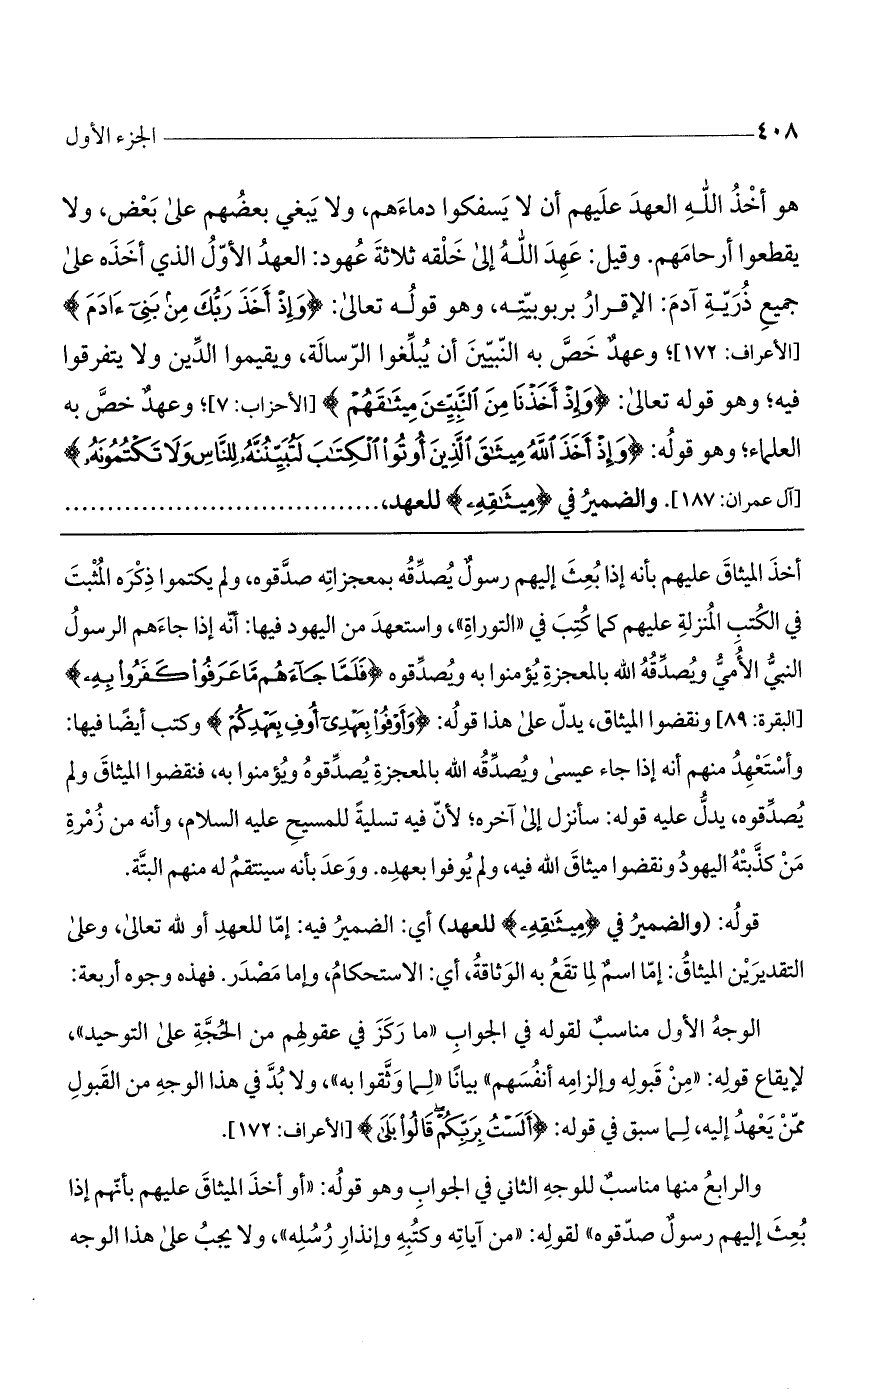 ٤٠٨ ـــــــــــــــــــــ الجزء الأول
هو أخْذُ اللـهِ العهدَ علَيهم أن لا يَسفكوا دماءَهم، ولا يَبغي بعضُهم علىٰ بَعْض، ولا
يقطعوا أرحامَهم. وقيل: عَهِدَ اللـهُ إلىٰ خَلْقه ثلاثةَ عُهود: العهدُ الأوّلُ الذي أخَذَه علىٰ
جميعِ ذُرَيّـةِ آدمَ: الإقـرارُ بربوبيّتِـه، وهو قولُـه تعالىٰ: ﴿وَإِذْ أَخَذَ رَبُّكَ مِنۢ بَنِىٓ ءَادَمَ﴾
[الأعراف: ١٧٢]؛ وعهدٌ خَصَّ به النّبيّينَ أن يُبلِّغوا الرّسالَة، ويقيموا الدِّين ولا يتفرقوا
فيه؛ وهو قوله تعالىٰ: ﴿وَإِذْ أَخَذْنَا مِنَ ٱلنَّبِيِّـۧنَ مِيثَـٰقَهُمْ﴾ [الأحزاب: ٧]؛ وعهدٌ خصَّ به
العلماء؛ وهو قولُه: ﴿وَإِذْ أَخَذَ ٱللَّهُ مِيثَـٰقَ ٱلَّذِينَ أُوتُوا۟ ٱلْكِتَـٰبَ لَتُبَيِّنُنَّهُۥ لِلنَّاسِ وَلَا تَكْتُمُونَهُۥ﴾
[آل عمران: ١٨٧]. والضميرُ في ﴿مِيثَـٰقِهِۦ﴾ للعهد، .....................................
أخذَ الميثاقَ عليهم بأنه إذا بُعِثَ إليهم رسولٌ يُصدِّقُه بمعجزاتِه صدَّقوه، ولم يكتموا ذِكْرَه المُثْبتَ
في الكُتبِ المُنزلةِ عليهم كما كُتِبَ في «التوراةِ»، واستعهدَ من اليهود فيها: أنّه إذا جاءَهم الرسولُ
النبيُّ الأُميُّ ويُصدِّقُهُ الله بالمعجزةِ يُؤمنوا به ويُصدِّقوه ﴿فَلَمَّا جَآءَهُم مَّا عَرَفُوا۟ كَفَرُوا۟ بِهِۦ﴾
[البقرة: ٨٩] ونقضوا الميثاق، يدلّ علىٰ هذا قولُه: ﴿وَأَوْفُوا۟ بِعَهْدِىٓ أُوفِ بِعَهْدِكُمْ﴾ وكتب أيضًا فيها:
وأسْتَعْهِدُ منهم أنه إذا جاء عيسىٰ ويُصدِّقُه الله بالمعجزةِ يُصدِّقوهُ ويُؤمنوا به، فنقضوا الميثاقَ ولم
يُصدِّقوه، يدلُّ عليه قوله: سأنزل إلىٰ آخره؛ لأنّ فيه تسليةً للمسيحِ عليه السلام، وأنه من زُمْرةِ
مَنْ كذَّبتْهُ اليهودُ ونقضوا ميثاقَ الله فيه، ولم يُوفوا بعهدِه. ووَعدَ بأنه سينتقمُ له منهم البتَّة.
قولُه: (والضميرُ في ﴿مِيثَـٰقِهِۦ﴾ للعهد) أي: الضميرُ فيه: إمّا للعهدِ أو لله تعالىٰ، وعلىٰ
التقديرَيْن الميثاقُ: إمّا اسمٌ لِما تقَعُ به الوَثاقةُ، أي: الاستحكامُ، وإما مَصْدَر. فهذه وجوه أربعة:
الوجهُ الأول مناسبٌ لقوله في الجوابِ «ما رَكَزَ في عقولِهم من الحُجَّةِ علىٰ التوحيد»،
لإيقاع قولِه: «مِنْ قَبولِه وإلزامِه أنفُسَهم» بيانًا «لِـما وَثَّقوا به»، ولا بُدَّ في هذا الوجهِ من القَبولِ
ممّنْ يَعْهدُ إليه، لِـما سبق في قوله: ﴿أَلَسْتُ بِرَبِّكُمْ ۖ قَالُوا۟ بَلَىٰ﴾ [الأعراف: ١٧٢].
والرابعُ منها مناسبٌ للوجهِ الثاني في الجوابِ وهو قولُه: «أو أخذَ الميثاقَ عليهم بأنّهم إذا
بُعِثَ إليهم رسولٌ صدّقوه» لقولِه: «من آياتِه وكتُبِهِ وإنذارِ رُسُلِه»، ولا يجبُ علىٰ هذا الوجه